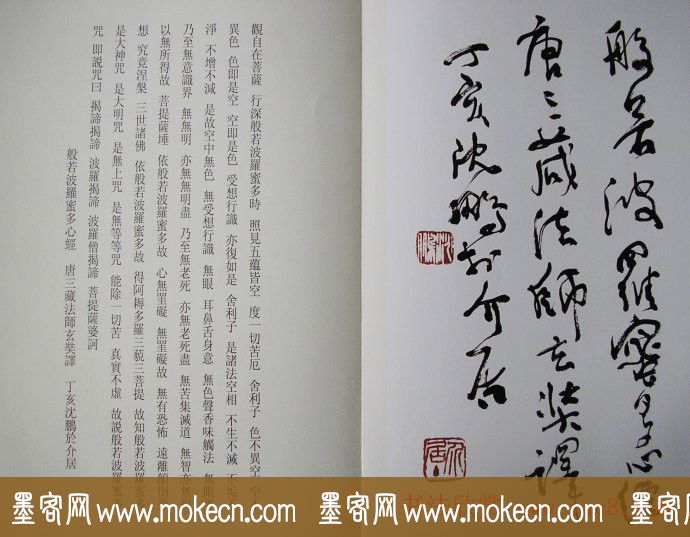 般若波羅蜜多心經
唐三藏法師玄奘譯
丁亥沈鵬於介居
觀自在菩薩 行深般若波羅蜜多時 照見五蘊皆空 度一切苦厄 舍利子 色不異空 空
異色 色即是空 空即是色 受想行識 亦復如是 舍利子 是諸法空相 不生不滅 不垢
淨 不增不減 是故空中無色 無受想行識 無眼 耳鼻舌身意 無色聲香味觸法 無眼
乃至無意識界 無無明 亦無無明盡 乃至無老死 亦無老死盡 無苦集滅道 無智亦無
以無所得故 菩提薩埵 依般若波羅蜜多故 心無罣礙 無罣礙故 無有恐怖 遠離顛倒
想 究竟涅槃 三世諸佛 依般若波羅蜜多故 得阿耨多羅三藐三菩提 故知般若波羅蜜多
是大神咒 是大明咒 是無上咒 是無等等咒 能除一切苦 真實不虛 故説般若波羅蜜多
咒 即説咒曰 揭諦揭諦 波羅揭諦 波羅僧揭諦 菩提薩婆訶
般若波羅蜜多心經 唐三藏法師玄奘譯 丁亥沈鵬於介居
墨客网 www.mokecn.com 墨客网 www.mokecn.com